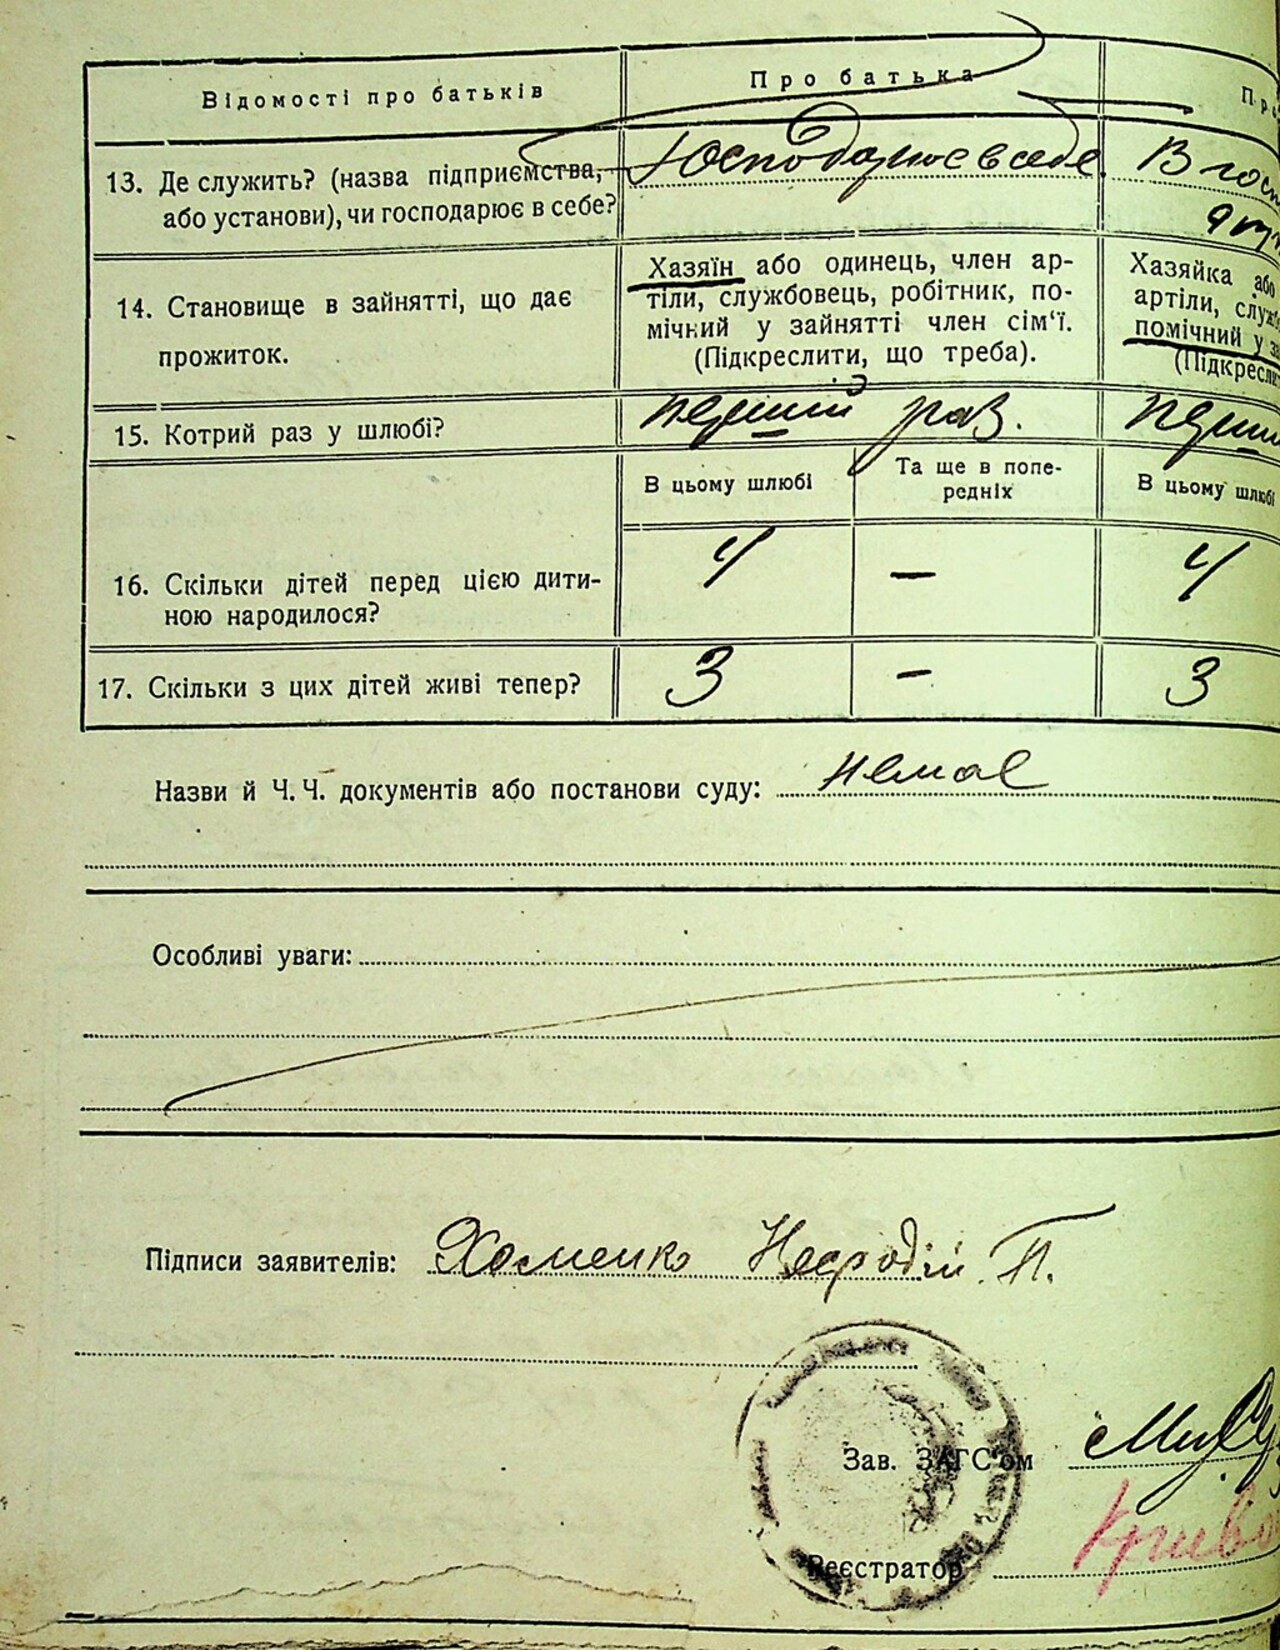 Відомості про батьків Про батька
13. Де служить? (назва підприємства, Господарює в себе. В
або установи), чи господарює в себе?
14. Становище в зайнятті, що дає
прожиток.
Хазяїн або одинець, член ар-
тіли, службовець, робітник, по-
мічний у зайнятті член сім‘ї.
(Підкреслити, що треба).
Хазяйка або
артіли,
помічний у
15. Котрий раз у шлюбі? перший раз.
В цьому шлюбі Та ще в попе-
редніх
В цьому шлюбі
16. Скільки дітей перед цією дити-
ною народилося?
4 — 4
17. Скільки з цих дітей живі тепер? 3 - 3
Назви й Ч. Ч. документів або постанови суду: немає
Особливі уваги:
Підписи заявителів: Хоменко П.
Зав. ЗАГС'ом
Реєстратор